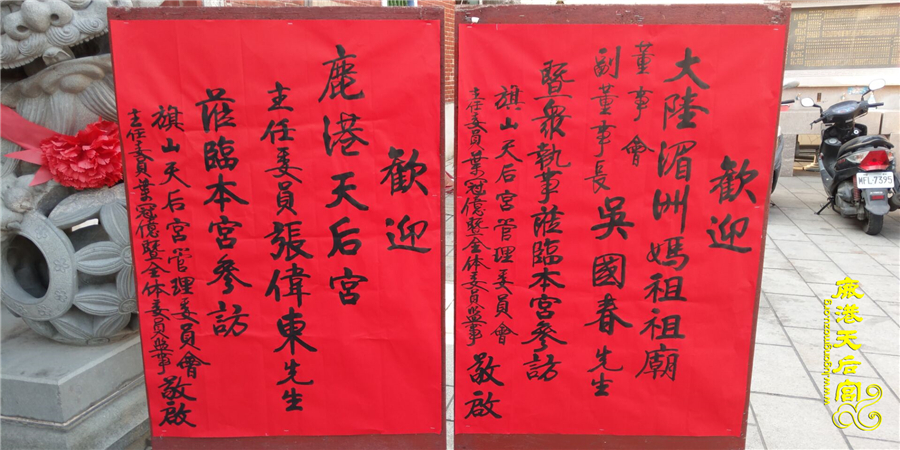 歡迎
大陸湄洲媽祖祖廟
董事會
副董事長 吳國春先生
暨衆執事蒞臨本宮參訪
旗山天后宮管理委員會
主任委員葉冠億暨全体委員監事 敬啟
歡迎
鹿港天后宮
主任委員張偉東先生
蒞臨本宮參訪
旗山天后宮管理委員會
主任委員葉冠億暨全体委員監事 敬啟
MFL-7395
鹿港天后宮